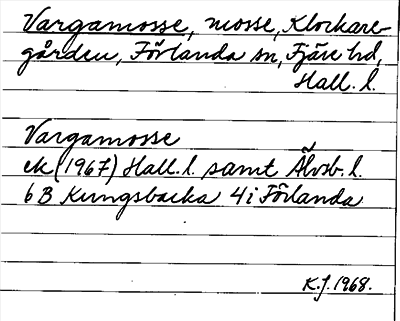 Vargamosse, mosse, Klockare-
gården, Förlanda sn, Fjäre hd,
Hall. l.
Vargamosse
ek (1967) Hall. l. samt Älvsb. l.
6 B Kungsbacka 4i Förlanda
K.J. 1968.